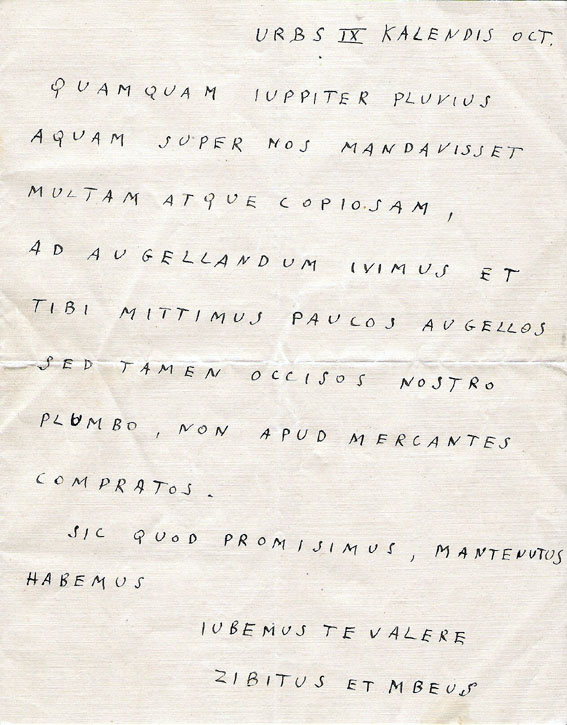 URBS IX KALENDIS OCT.
QUAMQUAM IUPPITER PLUVIUS
AQUAM SUPER NOS MANDAVISSET
MULTAM ATQUE COPIOSAM,
AD AUGELLANDUM IVIMUS ET
TIBI MITTIMUS PAUCOS AUGELLOS
SED TAMEN OCCISOS NOSTRO
PLUMBO, NON APUD MERCANTES
COMPRATOS.
SIC QUOD PROMISIMUS, MANTENUTUS
HABEMUS
IUBEMUS TE VALERE
ZIBITUS ET MBEUS